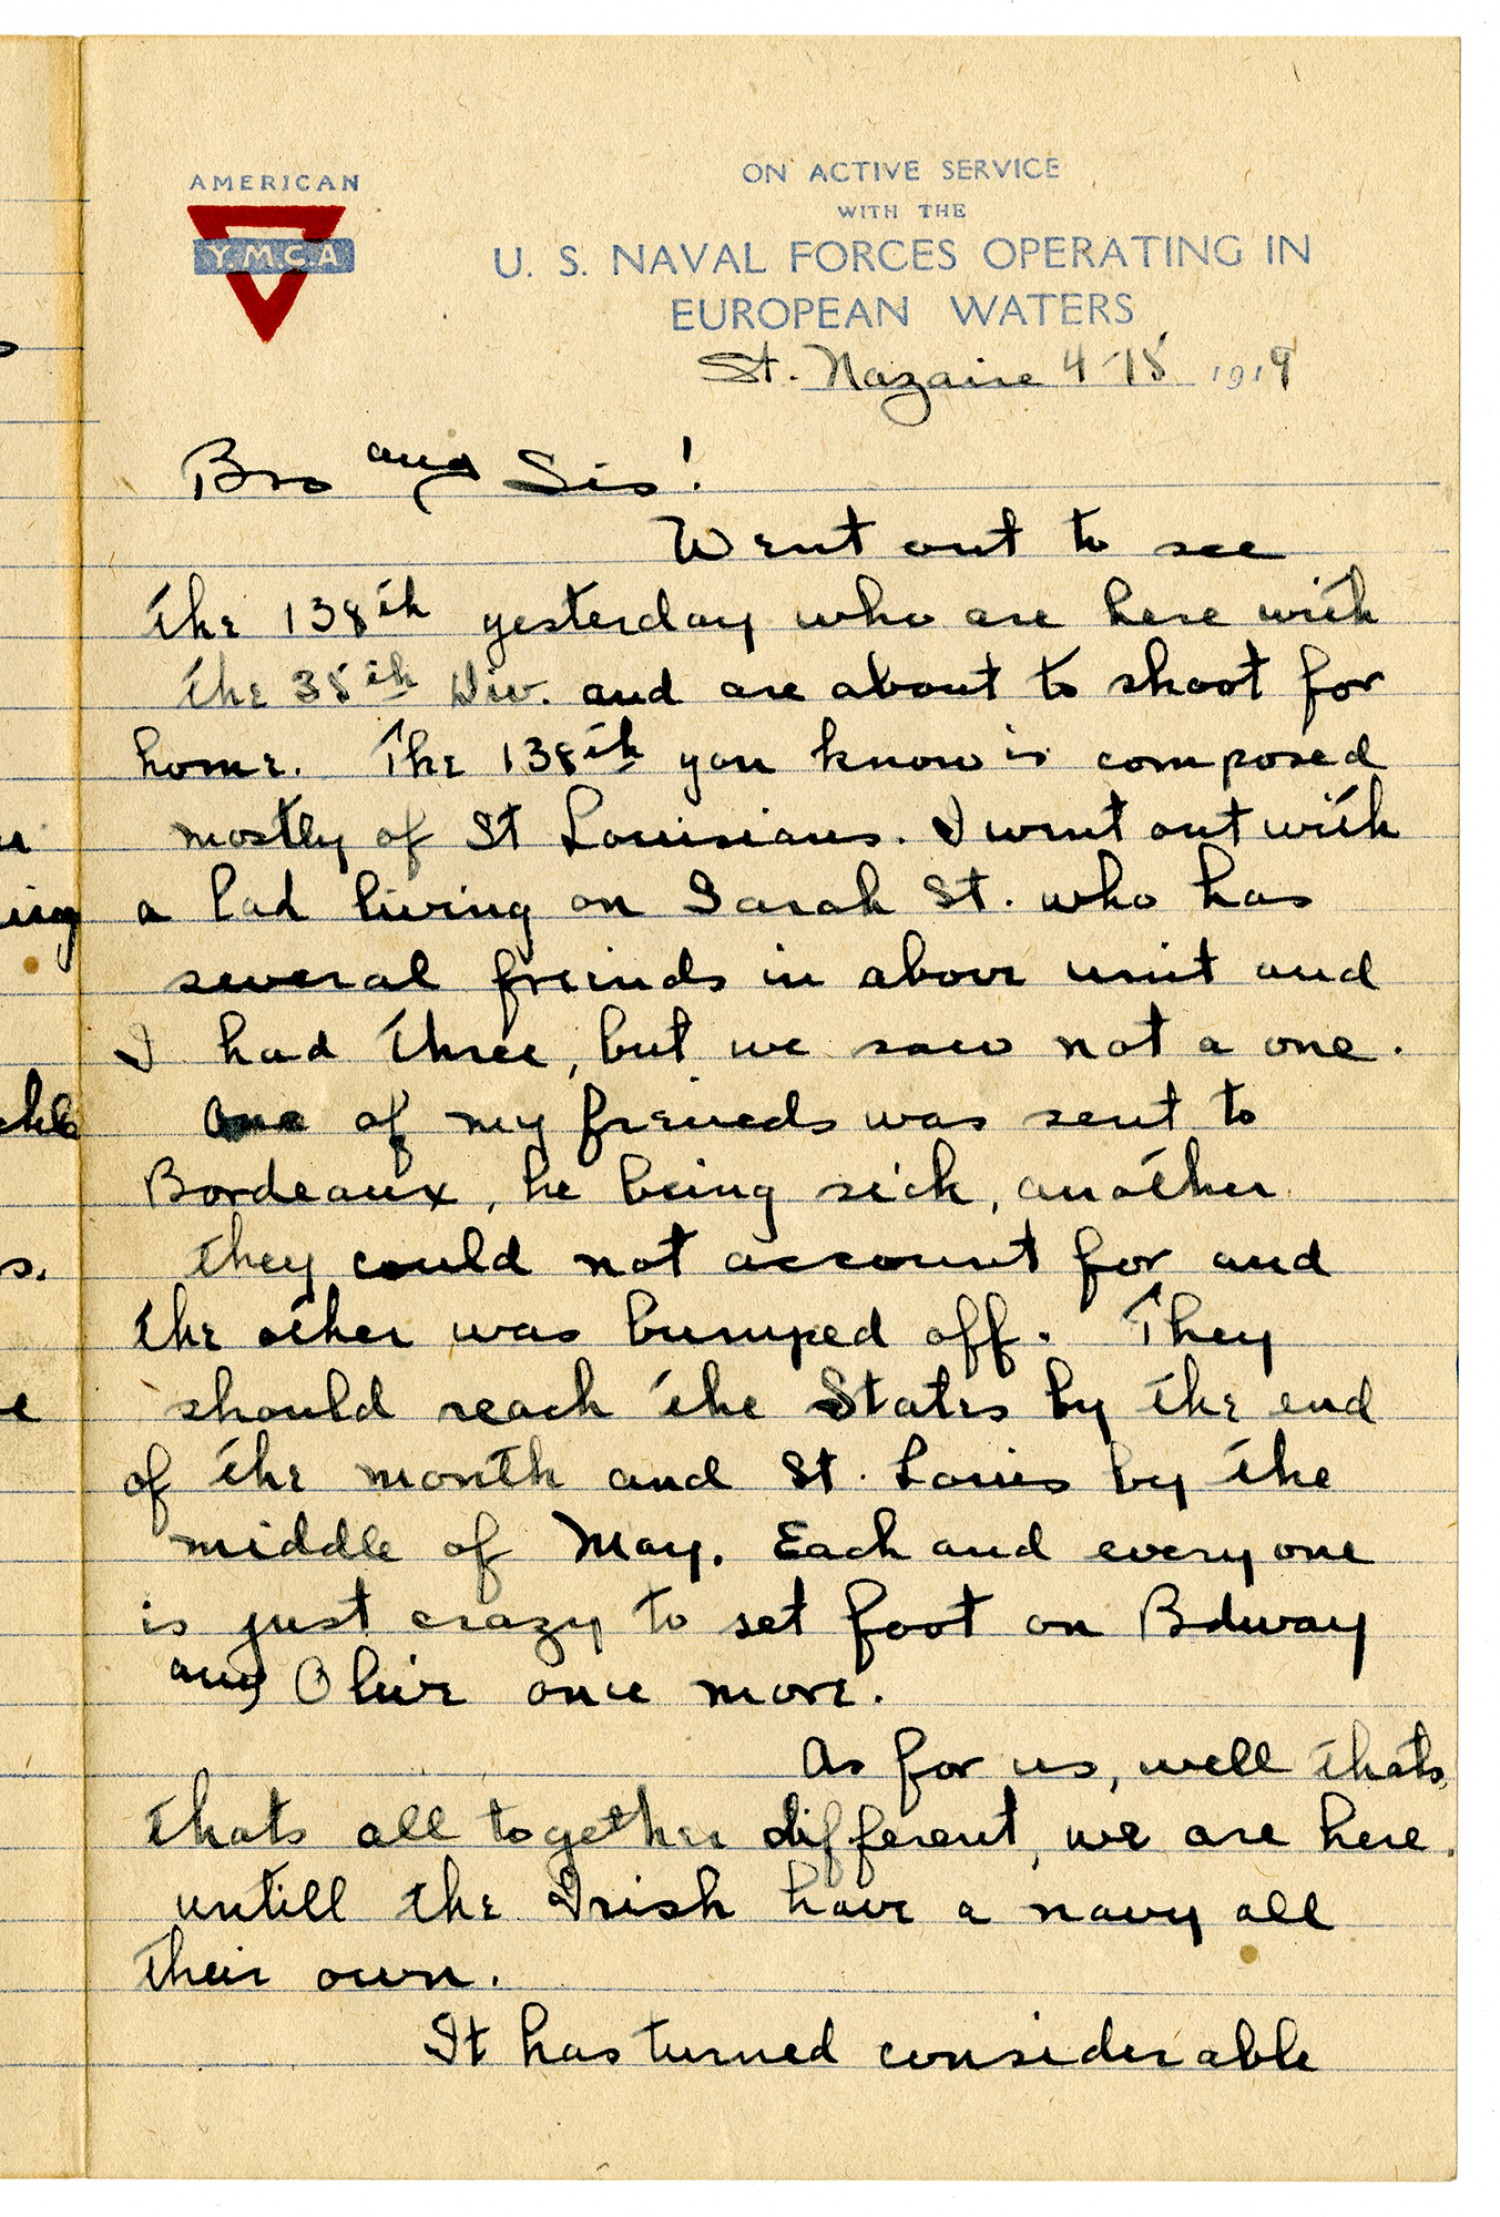 AMERICAN
Y.M.C.A
ON ACTIVE SERVICE
WITH THE
U. S. NAVAL FORCES OPERATING IN
EUROPEAN WATERS
St. Nazaire 4-15 1919
Bro and Sis!
Went out to see
the 138th yesterday who are here with
the 35th Div. and are about to shoot for
home. The 138th you know is composed
mostly of St Louisians. I went out with
a lad living on Sarah St. who has
several freinds in above unit and
I had three, but we saw not a one.
One of my freinds was sent to
Bordeaux, he being sick, another
they could not account for and
the other was bumped off. They
should reach the States by the end
of the month and St. Louis by the
middle of May. Each and every one
is just crazy to set foot on Bdway
and Olive once more.
As for us, well thats,
thats all together different, we are here
untill the Irish have a navy all
their own.
It has turned considerable